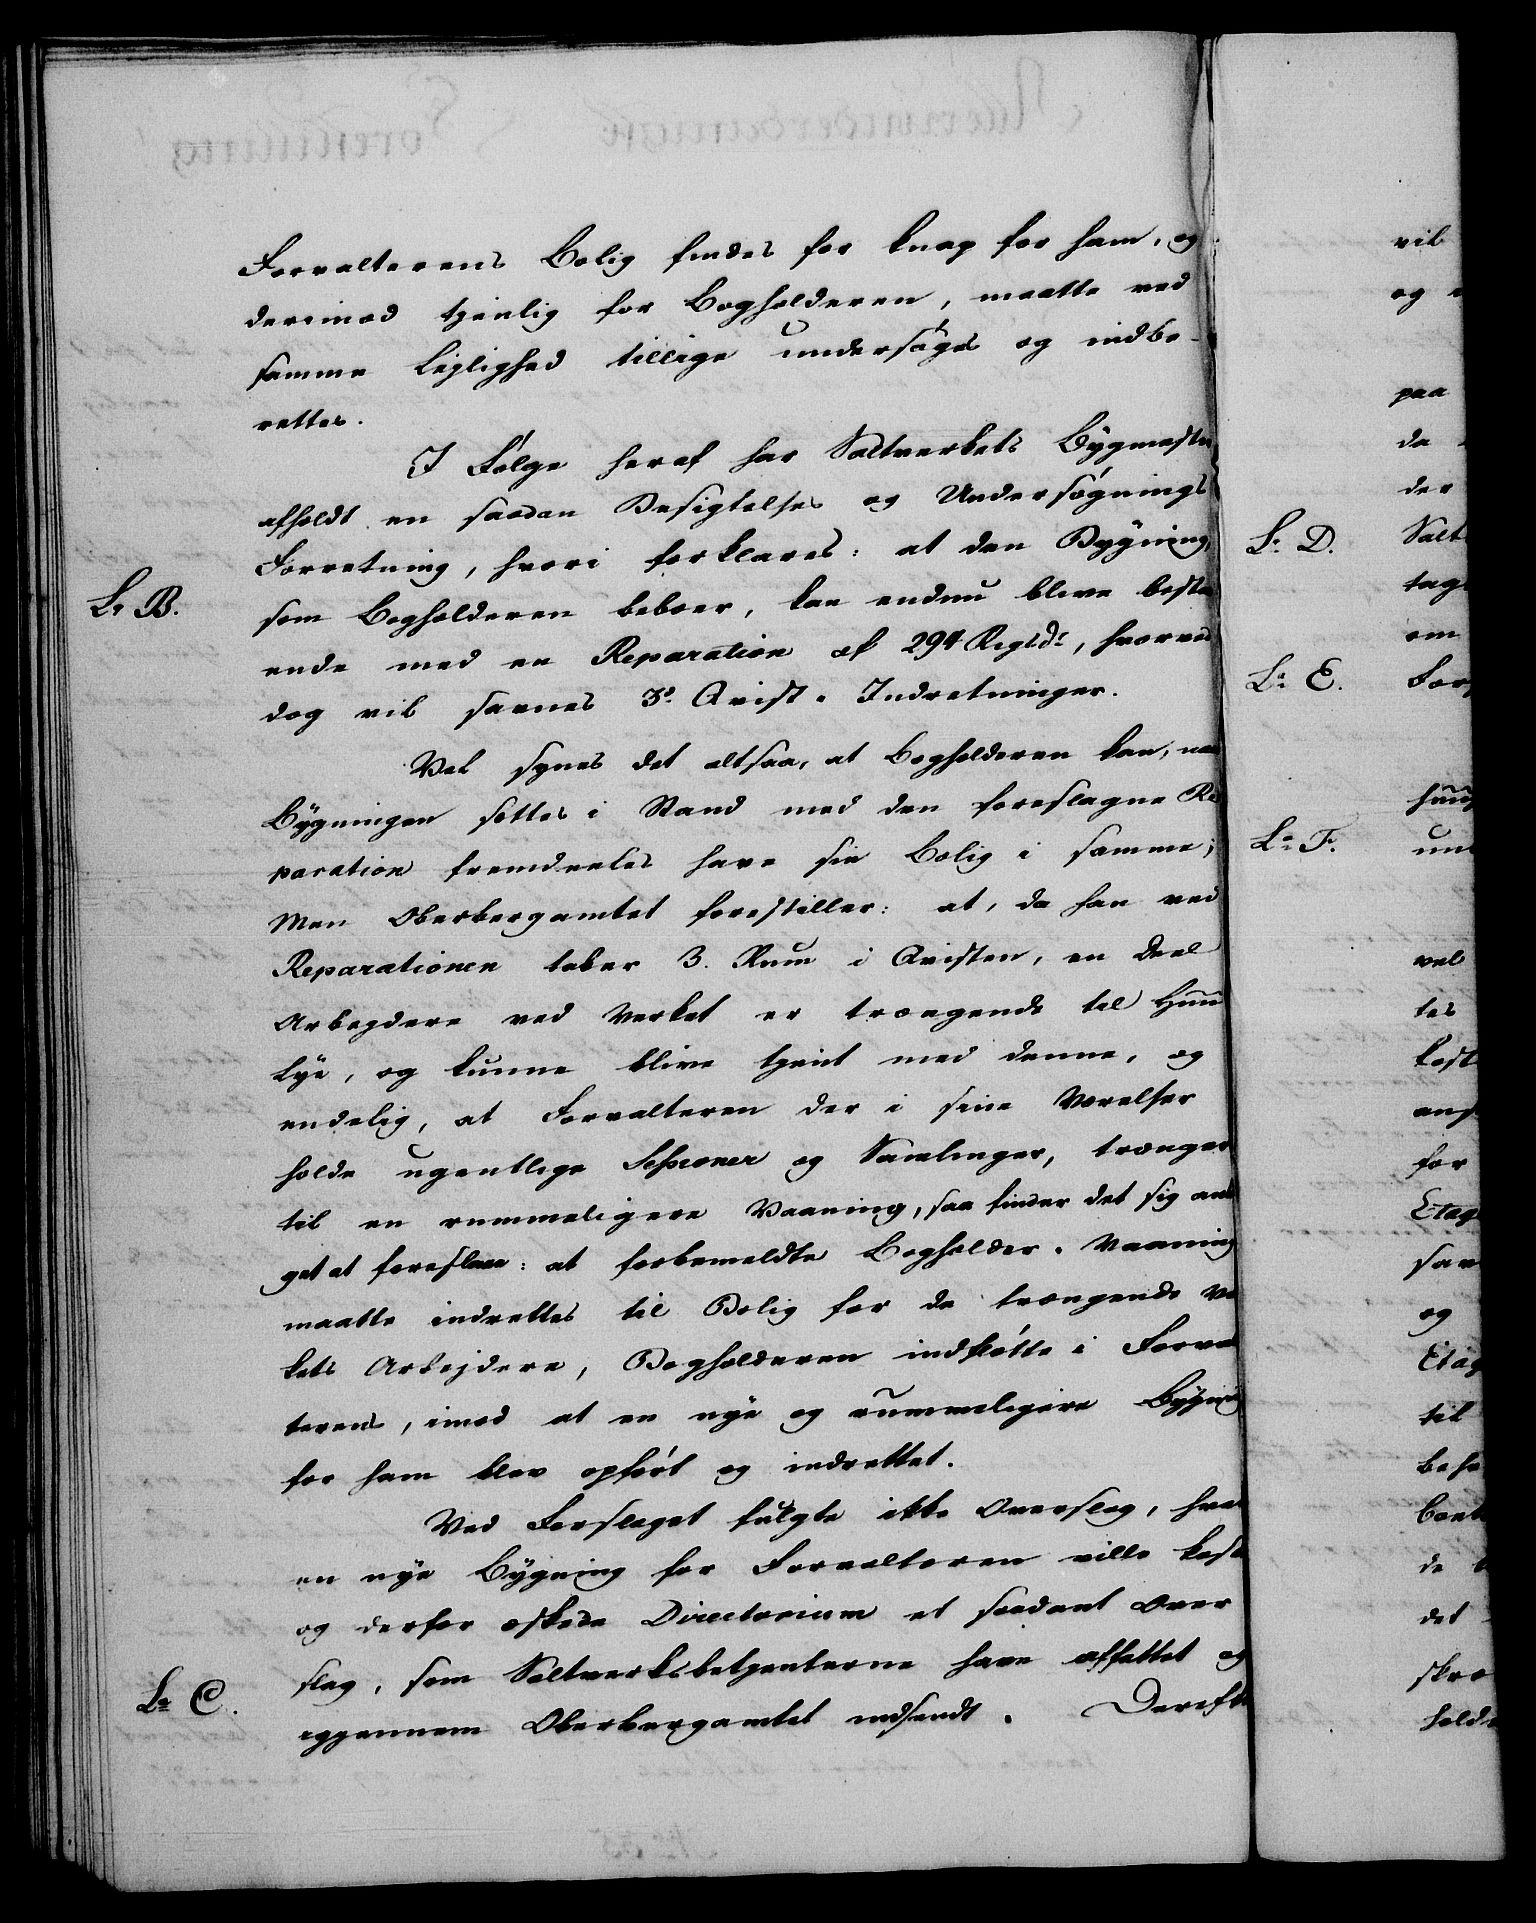 Forvalterens Bolig findes for knap for ham, og
derimod tjenlig for Bogholderen, maatte ved
samme Lejlighed tillige undersøges og indbe-
rettes.
I Følge heraf har Saltverkets Bygmester
afholdt en saadan Besigtelses og Undersøgnings
Forretning, hvori forklares: at den Bygning,
Lr B.
som Bogholderen beboer, kan endnu blive besta
ende med en Reparation af 294 Rigsdr, hvorved
dog vil savnes 3de Qvist-Indretninger.
Vel synes det altsaa, at Bogholderen kan, naar
Bygningen sættes i Stand med den foreslagne Re
paration fremdeeles have sin Bolig i samme;
Men Oberbergamtet forestiller: at, da han ved
Reparationen taber 3. Rum i Qvisten, en Deel
Arbejdere ved Verket er trængende til Huus
lye, og kunne blive tjent med denne, og
endelig, at Forvalteren der i sine Værelser
holde ugentlige Sessioner og Samlinger, trænger
til en rummeligere Vaaning, saa finder det sig anl
get at foreslaae: at forbemeldte Bogholder-Vaaning
maatte indrettes til Bolig for de trængende Ver
kets Arbejdere, Bogholderen indflötte i Forval
terens, imod at en nye og rummeligere Bygning
for ham blev opført og indrettet.
Ved Forslaget fulgte ikke Overslag, hvad
en nye Bygning for Forvalteren ville koste
og derfor æskede Directorium et saadant Over
slag, som Saltverksbetjenterne have affattet og
La C.
igjennem Oberbergamtet indsendt. Derefter
vil
og
paa
da
der
Lr D.
Salt
tage
om
La E.
For
huus
La F.
und
vel
tes
kost
ans
for
Etag
sav
og
Etag
til
beho
de
det
skre
holde